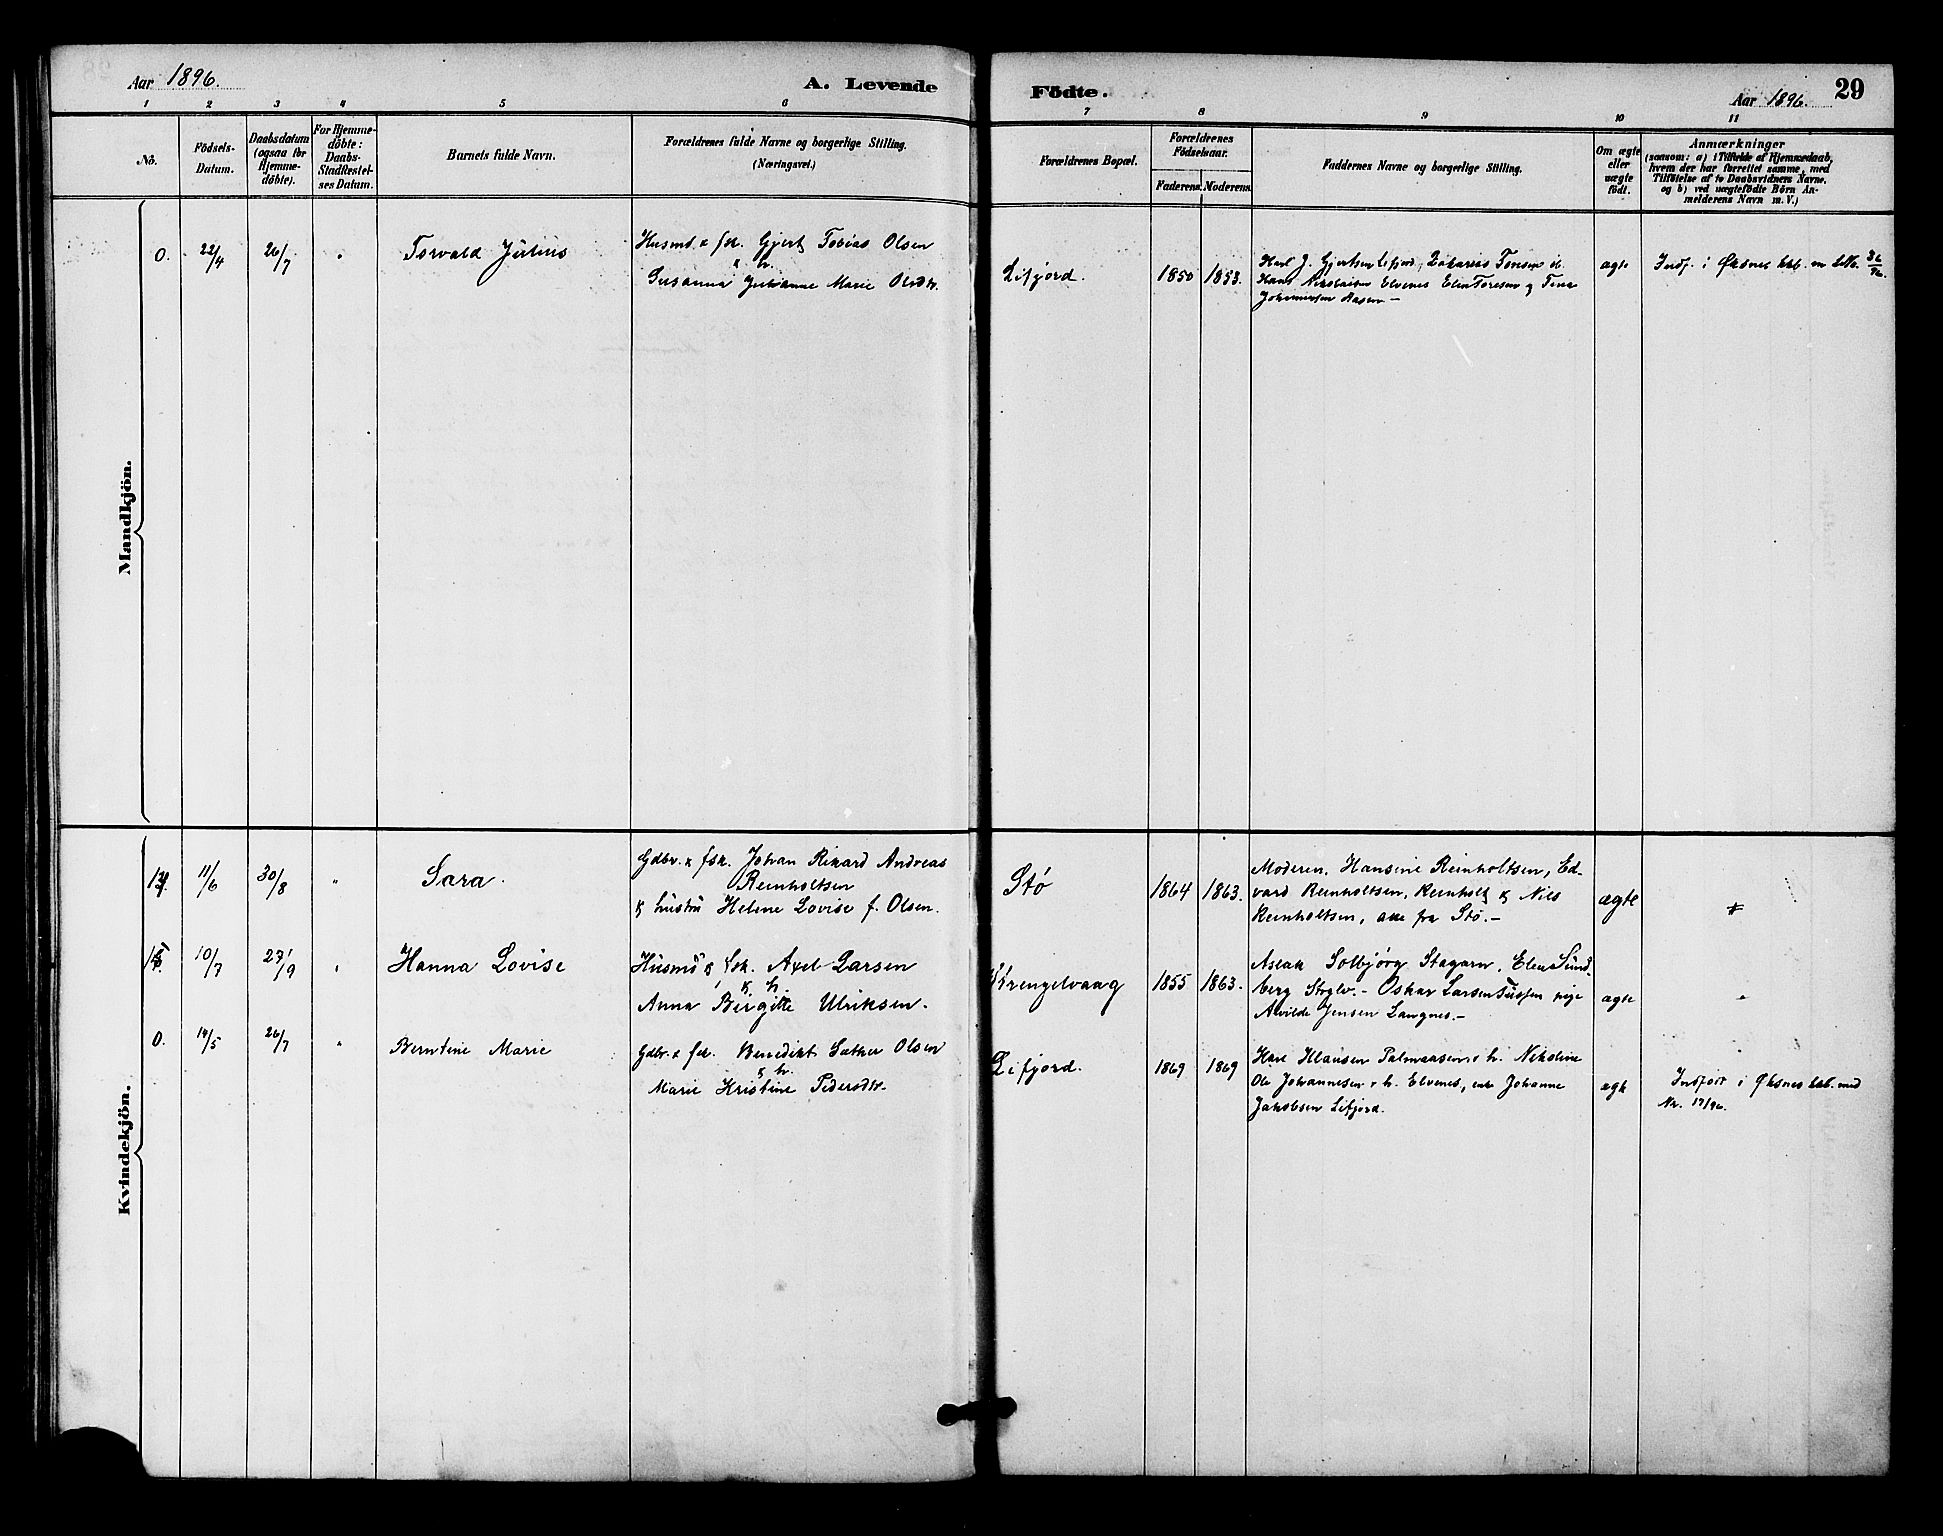 Aar 1896. A. Levende
Födte. Aar 1896. 29
1 2 3 4 5 6
7 8 9 10 11
No. Födsels-Datum. Daabsdatum (ogsaa for Hjemme-döbte). For Hjemme-döbte: Daabs-Stadfæstel-ses Datum. Barnets fulde Navn. Forældrenes fulde Navne og borgerlige Stilling. (Næringsvei.)
Forældrenes Bopæl. Forældrenes Födselsaar. Faderens. Moderens. Faddernes Navne og borgerlige Stilling. Om ægte eller uægte födt. Anmærkninger
(saasom: a) i Tilfælde af Hjemmedaab,
hvem der har forrettet samme, med
Tilföielse af to Daabsvidners Navne,
og b) ved uægtefödte Börn An-
melderens Navn m. V.)
Mandkjön.
0. 22/4 26/7 " Torvald Julius
Husmd. & fsk. Gjert Tobias Olsen
& h.
Susanna Julianne Marie Olsdtr.
Lifjord. 1850 1853.
Karl J. Gjertsen Lifjord, Zakarias Tonsen ib.
Hans Nikolaisen Elvenes Elen Toresen &
Johannesen Aasen -
ægte Indf. i Øksnes kkb. m 36/96.
Kvindekjön.
11/6 30/8 " Sara.
Gdbr. & fsk. Johan Rikard Andreas
Reinholtsen
& hustru Helene Lovise f. Olsen.
Stø 1864 1863.
Moderen, Hansine Reinholtsen, Ed-
vard Reinholtsen, Reinholt & Nils
Reinholtsen, alle fra Stø.-
ægte
10/7 27/9 " Hanna Lovise
Husmd & fsk. Axel Larsen
& h.
Anna Birgitte Ulriksen.
Krengelvaag 1855 1863.
Aslak Solbjørg Stagarn, Elen Sund-
berg Strglv.- Oskar Larsen pige
Alvilde Jensen Langnes.-
ægte "
0. 14/5 26/7 " Berntine Marie
Gdbr. & fsk. Benedikt Sather Olsen
& h.
Marie Kristine Pedersdtr.
Lifjord. 1869 1869
Hans Klausen & h. Nikoline
Ole Johannesen & h. Elvenes, enke Johanne
Jakobsen Lifjord.
ægte Indført i Øksnes kkb. med
Nr. 17/96.